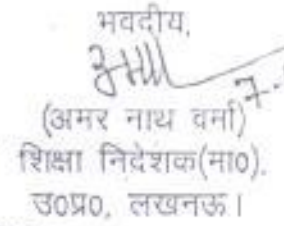 भवदीय,
(अमर नाथ वर्मा)
शिक्षा निदेशक(मा0),
उ0प्र0, लखनऊ।